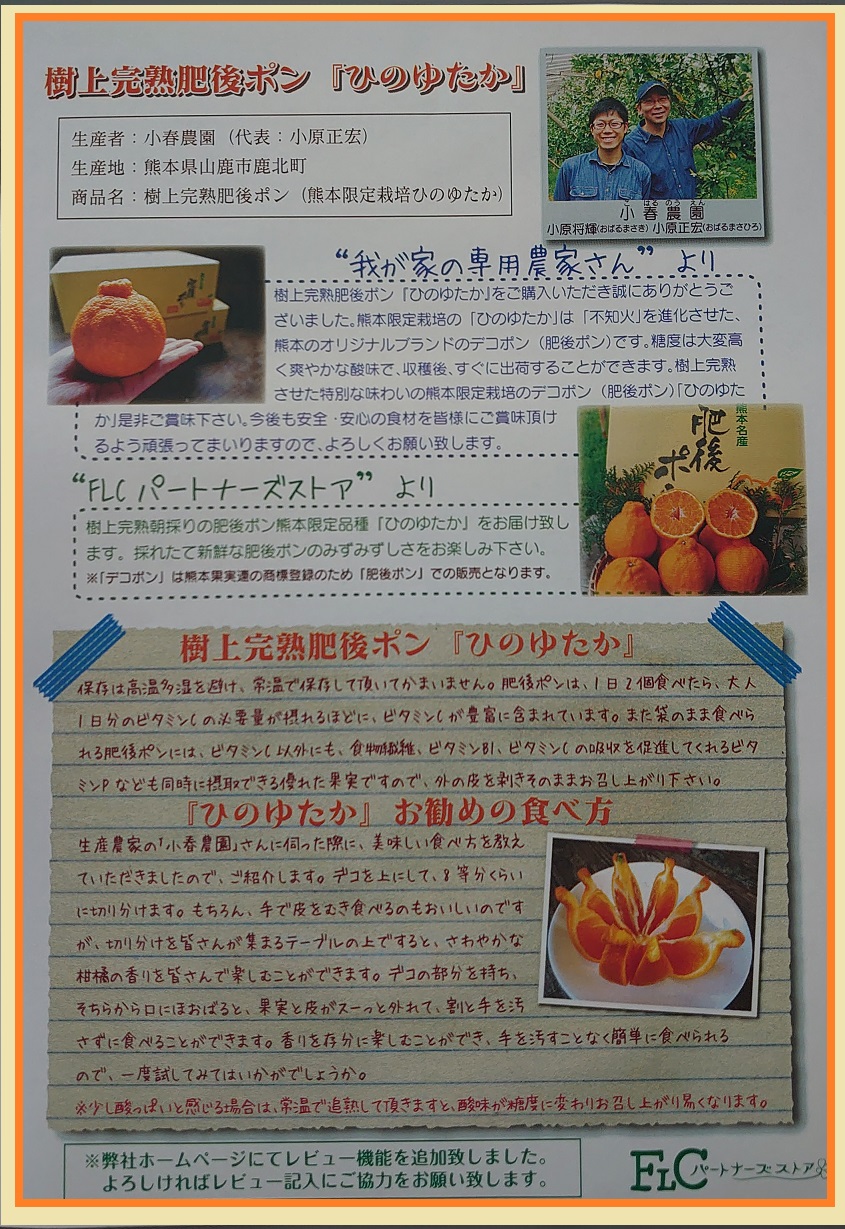 樹上完熟肥後ポン『ひのゆたか』
生産者：小春農園（代表：小原正宏）
生産地：熊本県山鹿市鹿北町
商品名：樹上完熟肥後ポン（熊本限定栽培ひのゆたか）
こ はる のう えん
小春農園
小原将輝(おばるまさき) 小原正宏(おばるまさひろ)
“我が家の専用農家さん” より
樹上完熟肥後ポン「ひのゆたか」をご購入いただき誠にありがとうご
ざいました。熊本限定栽培の「ひのゆたか」は「不知火」を進化させた、
熊本のオリジナルブランドのデコポン（肥後ポン）です。糖度は大変高
く爽やかな酸味で、収穫後、すぐに出荷することができます。樹上完熟
させた特別な味わいの熊本限定栽培のデコポン（肥後ポン）「ひのゆた
か」是非ご賞味下さい。今後も安全・安心の食材を皆様にご賞味頂け
るよう頑張ってまいりますので、よろしくお願い致します。
熊本名産
肥後ポン
“FLCパートナーズストア” より
樹上完熟朝採りの肥後ポン熊本限定品種「ひのゆたか」をお届け致し
ます。採れたて新鮮な肥後ポンのみずみずしさをお楽しみ下さい。
※「デコポン」は熊本果実連の商標登録のため「肥後ポン」での販売となります。
樹上完熟肥後ポン『ひのゆたか』
保存は高温多湿を避け、常温で保存して頂いてかまいません。肥後ポンは、1日2個食べたら、大人
1日分のビタミンCの必要量が摂れるほどに、ビタミンCが豊富に含まれています。また袋のまま食べら
れる肥後ポンには、ビタミンC以外にも、食物繊維、ビタミンB1、ビタミンCの吸収を促進してくれるビタ
ミンPなども同時に摂取できる優れた果実ですので、外の皮を剥きそのままお召し上がり下さい。
『ひのゆたか』お勧めの食べ方
生産農家の「小春農園」さんに伺った際に、美味しい食べ方を教え
ていただきましたので、ご紹介します。デコを上にして、8等分くらい
に切り分けます。もちろん、手で皮をむき食べるのもおいしいのです
が、切り分けを皆さんが集まるテーブルの上ですると、さわやかな
柑橘の香りを皆さんで楽しむことができます。デコの部分を持ち、
そちらから口にほおばると、果実と皮がスーっと外れて、割と手を汚
さずに食べることができます。香りを存分に楽しむことができ、手を汚すことなく簡単に食べられる
ので、一度試してみてはいかがでしょうか。
※少し酸っぱいと感じる場合は、常温で追熟して頂きますと、酸味が糖度に変わりお召し上がり易くなります。
※弊社ホームページにてレビュー機能を追加致しました。
よろしければレビュー記入にご協力をお願い致します。
FLCパートナーズストア